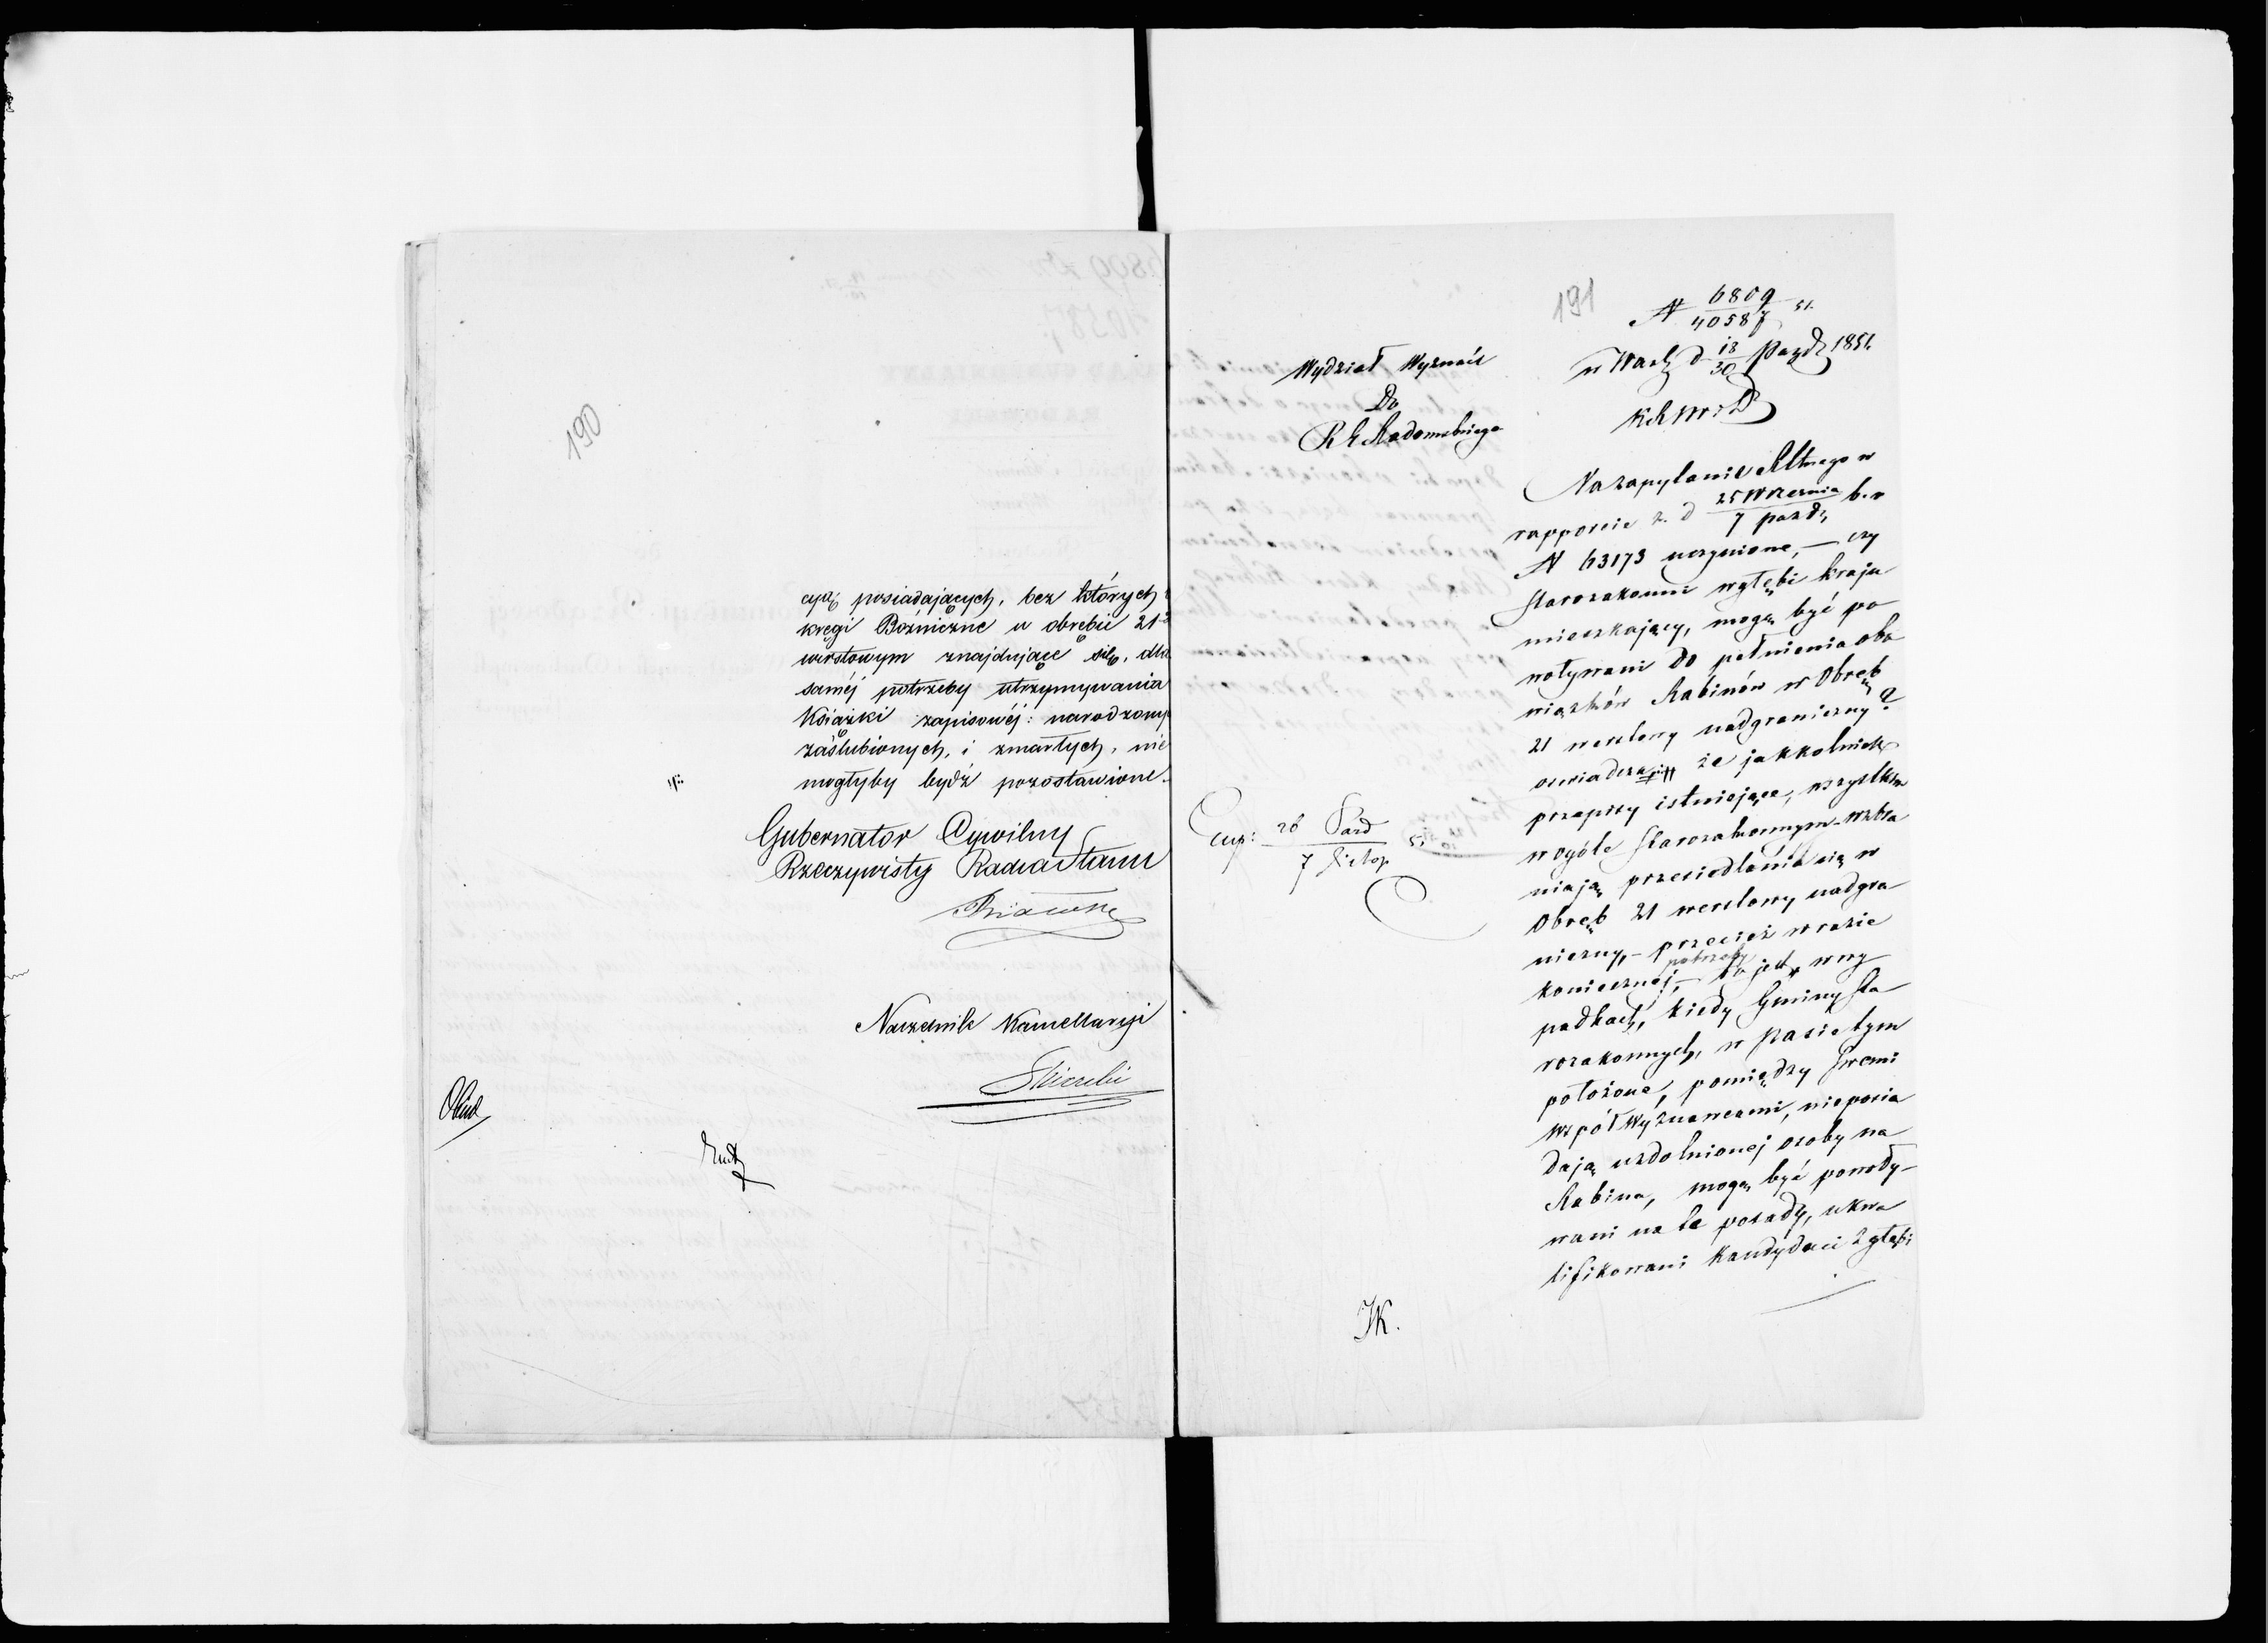 190
cyj posiadających, bez których
kręgi Bóżnicze w obrębie 21
wiorstowym znajdujące się, dla
saméj potrzeby utrzymywania
Książki zapisowéj: narodzonych
zaślubionych, i zmarłych, nie
mogłyby bydź pozostawione.
Gubernator Cywilny
Rzeczywisty Radca Stanu
Naczelnik Kancellaryi
191
N 6809/40587 51.
w Warsz d 18/30 Pazdz 1851.
Wydział Wyznań
Do
R G Radomskiego
K R S W i D
Na zapytanie w
rapporcie z d 25 Września/7 pazdz b. r
N 63173 uczynione, — czy
Starozakonni w głębi kraju
mieszkający, mogą być po
woływani do pełnienia obo
wiązków Rabinów w Obręb
21 werstowy nadgraniczny?
oswiadcza że jakkolwiek
przepisy istniejące, wszystkim
w ogóle Starozakonnym wzbra
niają przesiedlania się w
Obręb 21 werstowy nadgra
niczny, – przecież w razie
koniecznej potrzeby, – to jest w wy
padkach, kiedy Gminy Sta
rozakonnych, w pasie tym
położone, pomiędzy swemi
współwyznawcami, nieposia
dają uzdolnionej osoby na
Rabina, mogą być powoły-
wani na te posady, ukwa
lifikowani Kandydaci z głębi
Exp: 26 Pázd/7 Listop 51
JK.